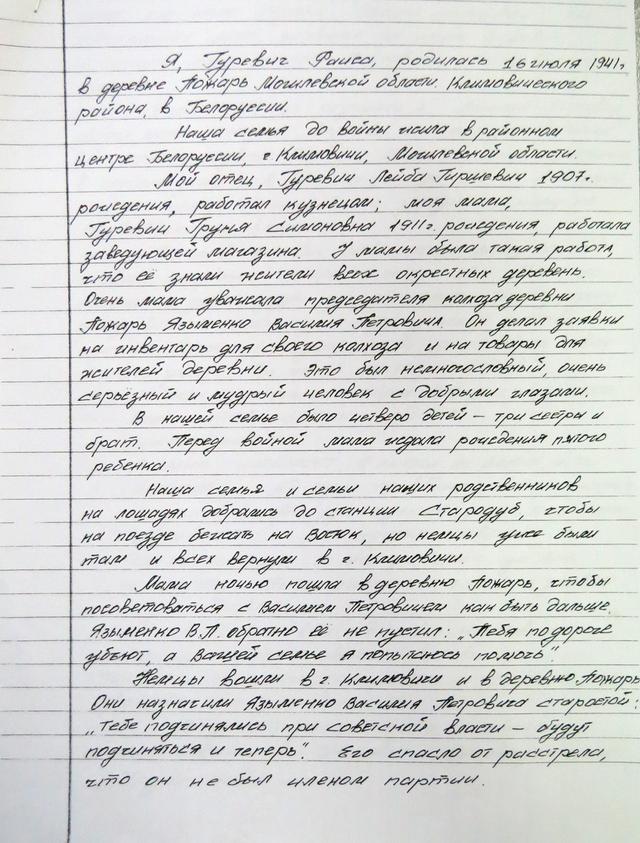 Я, Гуревич Раиса, родилась 16 июля 1941г
в деревне Пожарь Могилевской области Климовического
района, в Белоруссии.
Наша семья до войны жила в районном
центре Белоруссии, г. Климовичи, Могилевской области.
Мой отец, Гуревич Лейба Гиршевич 1907г.
рождения, работал кузнецом; моя мама,
Гуревич Груня Симоновна 1911г. рождения, работала
заведующей магазина. У мамы была такая работа,
что её знали жители всех окрестных деревень.
Очень мама уважала председателя колхоза деревни
Пожарь Языменко Василия Петровича. Он делал заявки
на инвентарь для своего колхоза и на товары для
жителей деревни. Это был немногословный, очень
серьёзный и мудрый человек с добрыми глазами.
В нашей семье было четверо детей – три сестры и
брат. Перед войной мама ждала рождения пятого
ребенка.
Наша семья и семьи наших родственников
на лошадях добрались до станции Стародуб, чтобы
на поезде бежать на Восток, но немцы уже были
там и всех вернули в г. Климовичи.
Мама ночью пошла в деревню Пожарь, чтобы
посоветоваться с Василием Петровичем как быть дальше.
Языменко В.П. обратно её не пустил: „Тебя по дороге
убьют, а Вашей семье я попытаюсь помочь".
Немцы вошли в г. Климовичи и в деревню Пожарь
Они назначили Языменко Василия Петровича старостой:
„Тебе подчинялись при советской власти – будут
подчиняться и теперь". Его спасло от расстрела,
что он не был членом партии.